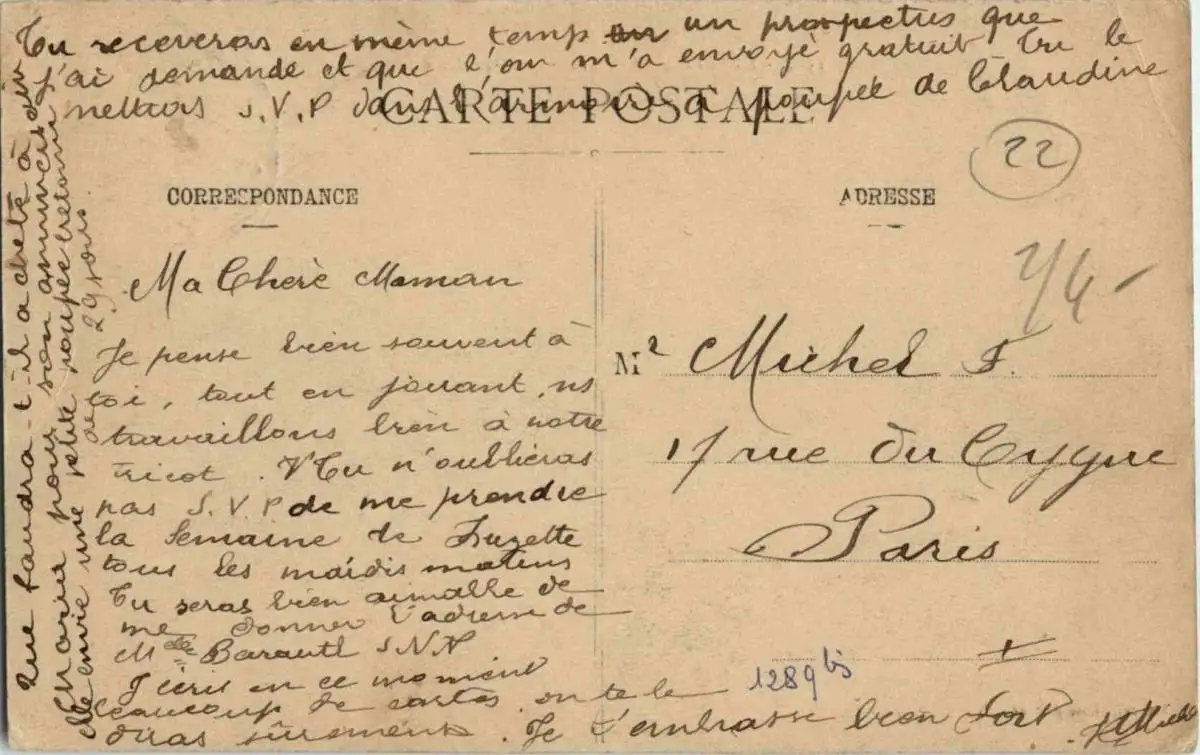 Tu receveras en même temp un prospectus que
j'ai demandé et que l'on m'a envoyé gratuit. Tu le
mettras S.V.P dans l'armoire a poupée de Claudine
CARTE POSTALE
22
CORRESPONDANCE
ADRESSE
Ma Cherè Maman
Je pense bien souvent à
toi, tout en jouant, ns
travaillons bien à notre
tricot. Tu n'oublieras
pas S.V.P de me prendre
la Semaine de Suzette
tous les mardis matins
Tu seras bien aimable de
me donner l'adresse de
Melle
J'ecris en ce moment
beaucoup de cartes. on te le
diras sûrement. Je t'embrasse bien fort
Y4-
M
Michel F.
17 rue du Cygne
Paris
1289 bis
Que faudra-t-il acheté à
Maria pour son
elle envie une petite poupée bretonne
de 29 sous.